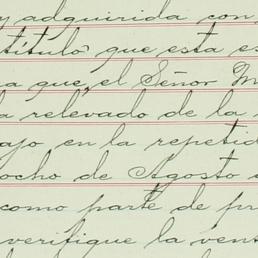 y adquirida con
título que esta es
a que, el Señor M
a relevado de la
ajo en la repetid
ocho de Agosto
como parte de pr
verifique la vent